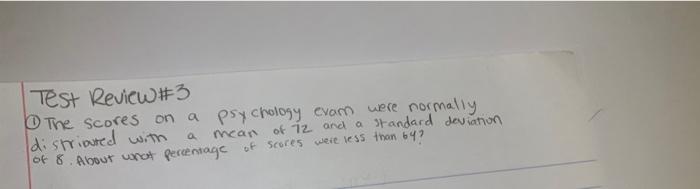 Test Review #3
① The scores on a psychology exam were normally
distributed with a mean of 72 and a standard deviation
of 8. About what percentage of scores were less than 64?